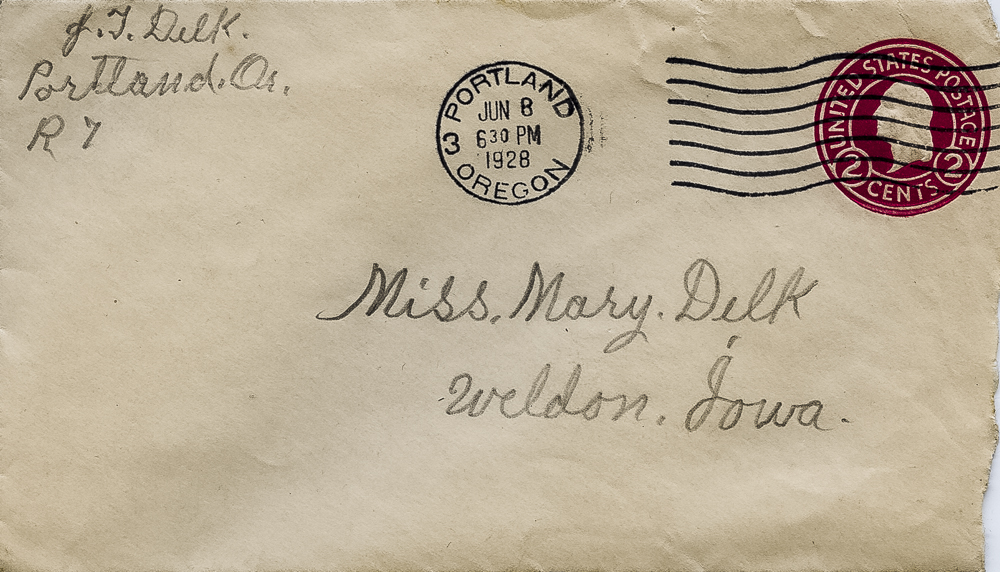 J. T. Delk.
Portland. Or.
R 7
PORTLAND
JUN 8
6 30 PM
1928
3
OREGON
UNITED STATES POSTAGE
2 CENTS 2
Miss. Mary. Delk
Weldon. Iowa.